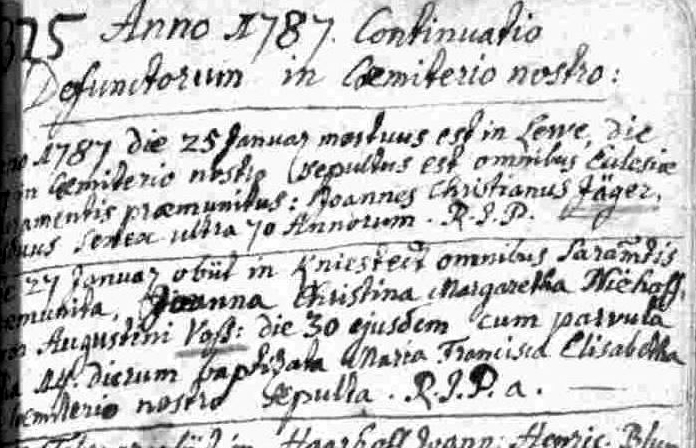 325 Anno 1787. Continuatio
Defunctorum in Cœmiterio nostro:
1787 die 25 Januar mortuus est in Lewe, die
in Cœmiterio nostro sepultus est omnibus Eclesiæ
amentis præmunitus: Joannes Christianus Jäger,
Senex ultra 70 Annorum. R. I. P.
27 Januar obiit in Kniestedt omnibus
emunita, Joanna Christina Margaretha Niehoff,
Augustini Voss: die 30 ejusdem cum parvula
14. dierum baptizata Maria Francisca Elisabetha
œmiterio nostro sepulta. R. I. P. a.
in Haarhoff Joann: Henric